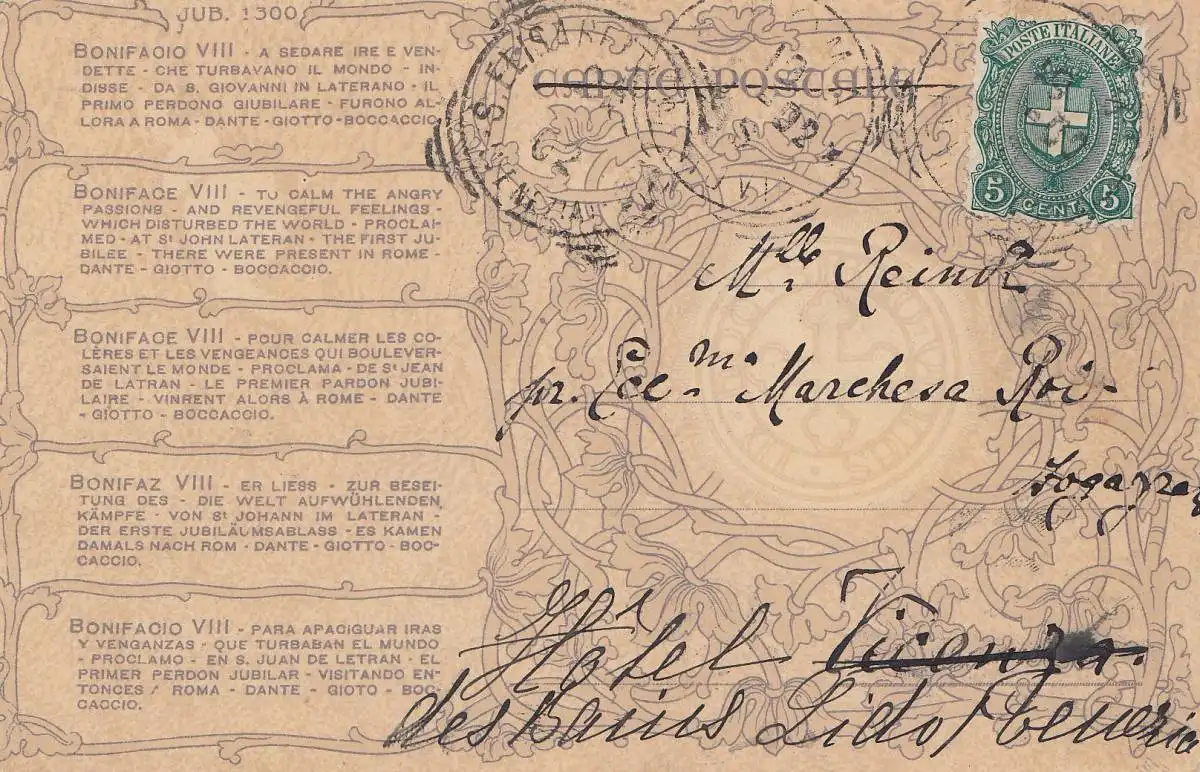 JUB. 1300
BONIFACIO VIII - A SEDARE IRE E VEN-
DETTE - CHE TURBAVANO IL MONDO - IN-
DISSE - DA S. GIOVANNI IN LATERANO - IL
PRIMO PERDONO GIUBILARE - FURONO AL-
LORA A ROMA - DANTE - GIOTTO - BOCCACCIO
BONIFACE VIII - TO CALM THE ANGRY
PASSIONS - AND REVENGEFUL FEELINGS -
WHICH DISTURBED THE WORLD - PROCLAI-
MED - AT St JOHN LATERAN - THE FIRST JU-
BILEE - THERE WERE PRESENT IN ROME -
DANTE - GIOTTO - BOCCACCIO.
BONIFACE VIII - POUR CALMER LES CO-
LÈRES ET LES VENGEANCES QUI BOULEVER-
SAIENT LE MONDE - PROCLAMA - DE St JEAN
DE LATRAN - LE PREMIER PARDON JUBI-
LAIRE - VINRENT ALORS À ROME - DANTE
- GIOTTO - BOCCACCIO.
BONIFAZ VIII - ER LIESS - ZUR BESEI-
TUNG DES - DIE WELT AUFWÜHLENDEN
KÄMPFE - VON St JOHANN IM LATERAN -
DER ERSTE JUBILÄUMSABLASS - ES KAMEN
DAMALS NACH ROM - DANTE - GIOTTO - BOC-
CACCIO.
BONIFACIO VIII - PARA APACIGUAR IRAS
Y VENGANZAS - QUE TURBABAN EL MUNDO
- PROCLAMO - EN S. JUAN DE LETRAN - EL
PRIMER PERDON JUBILAR - VISITANDO EN-
TONCES / ROMA - DANTE - GIOTO - BOC-
CACCIO.
CARTE POSTALE
POSTE ITALIANE
5 CENT. 5
Mlle Reindl
pr. Ecc.ma Marchesa Roi-
Vicenza.
Hôtel
des Bains Lido / Venezia